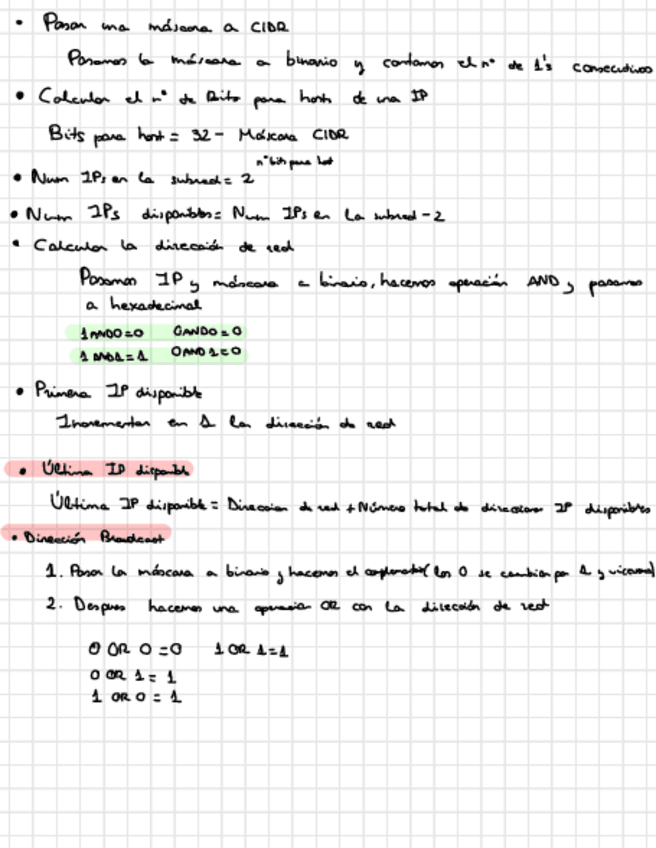 • Pasar una máscara a CIDR
Pasamos la máscara a binario y contamos el nº de 1's consecutivos
• Calcular el nº de Bits para hosts de una IP
Bits para host = 32 - Máscara CIDR
nº bits para host
• Num IPs en la subred = 2
• Num IPs disponibles = Num IPs en la subred - 2
• Calcular la dirección de red
Pasamos IP y máscara a binario, hacemos operación AND y pasamos
a hexadecimal
1 AND 0 = 0 0 AND 0 = 0
1 AND 1 = 1 0 AND 1 = 0
• Primera IP disponible
Incrementar en 1 la dirección de red
• Última IP disponible
Última IP disponible = Direccion de red + Número total de direcciones IP disponibles
• Dirección Broadcast
1. Pasar la máscara a binario y hacemos el (los 0 se cambian por 1 y viceversa)
2. Despues hacemos una operación OR con la dirección de red
0 OR 0 = 0 1 OR 1 = 1
0 OR 1 = 1
1 OR 0 = 1